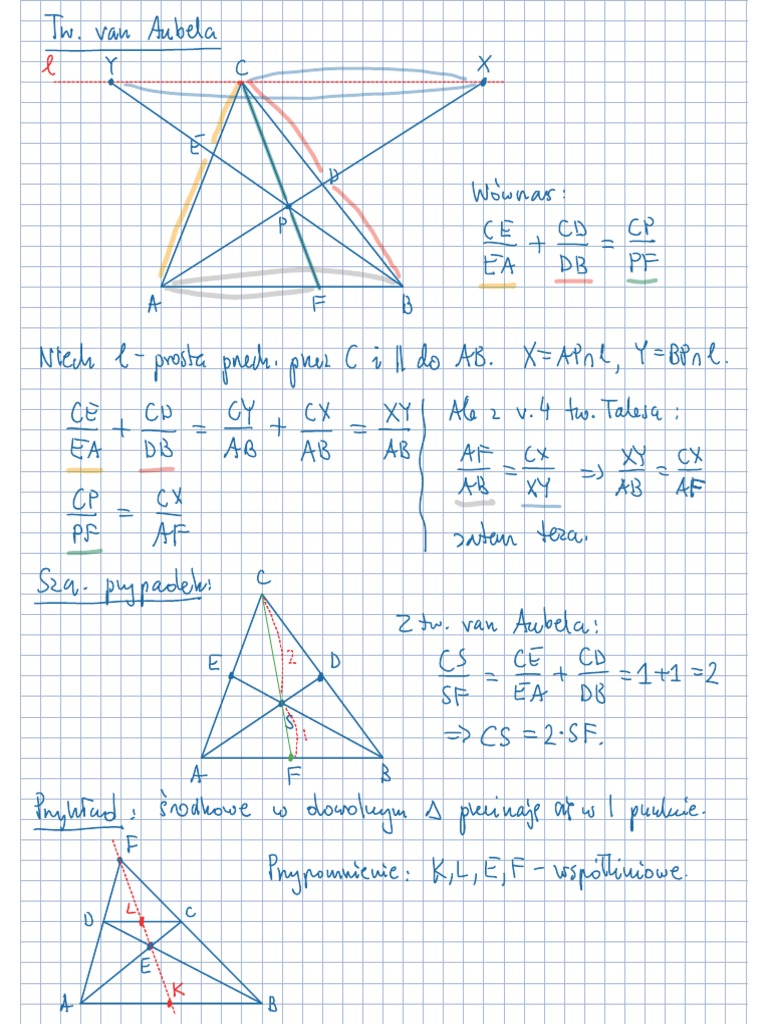 Tw. van Aubela
l Y C X
E D
P
A F B
Wównas:
CE/EA + CD/DB = CP/PF
Niech l - prosta przech. przez C i || do AB. X = AP∩l, Y = BP∩l.
CE/EA + CD/DB = CY/AB + CX/AB = XY/AB
CP/PF = CX/AF
Ale z v.4 tw. Talesa:
AF/AB = CX/XY => XY/AB = CX/AF
zatem teza.
Szq. przypadek:
C
E D
2
S 1
A F B
Z tw. van Aubela:
CS/SF = CE/EA + CD/DB = 1+1 = 2
=> CS = 2·SF.
Przykład: środkowe w dowolnym Δ przecinają się w 1 punkcie.
Przypomnienie: K, L, E, F - współliniowe.
F
D L C
E
A K B